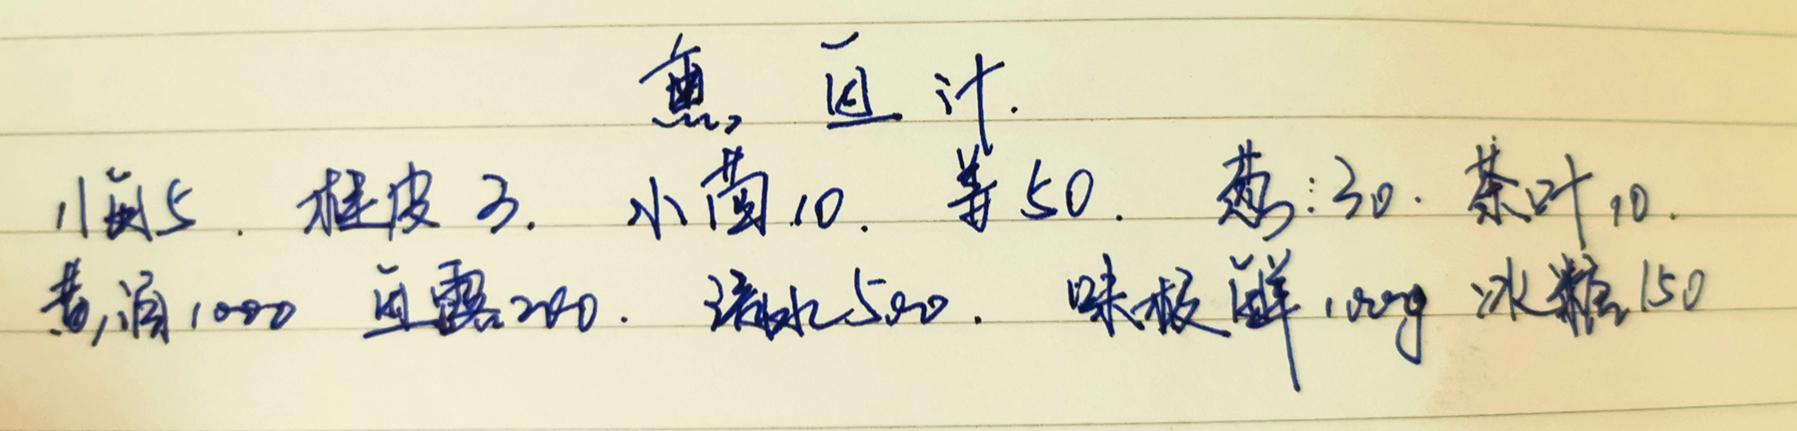 熏鱼汁.
八角5. 桂皮3. 小茴10. 姜50. 葱:30. 茶叶10.
黄酒1000 鱼露200. 清水500. 味极鲜100g 冰糖150